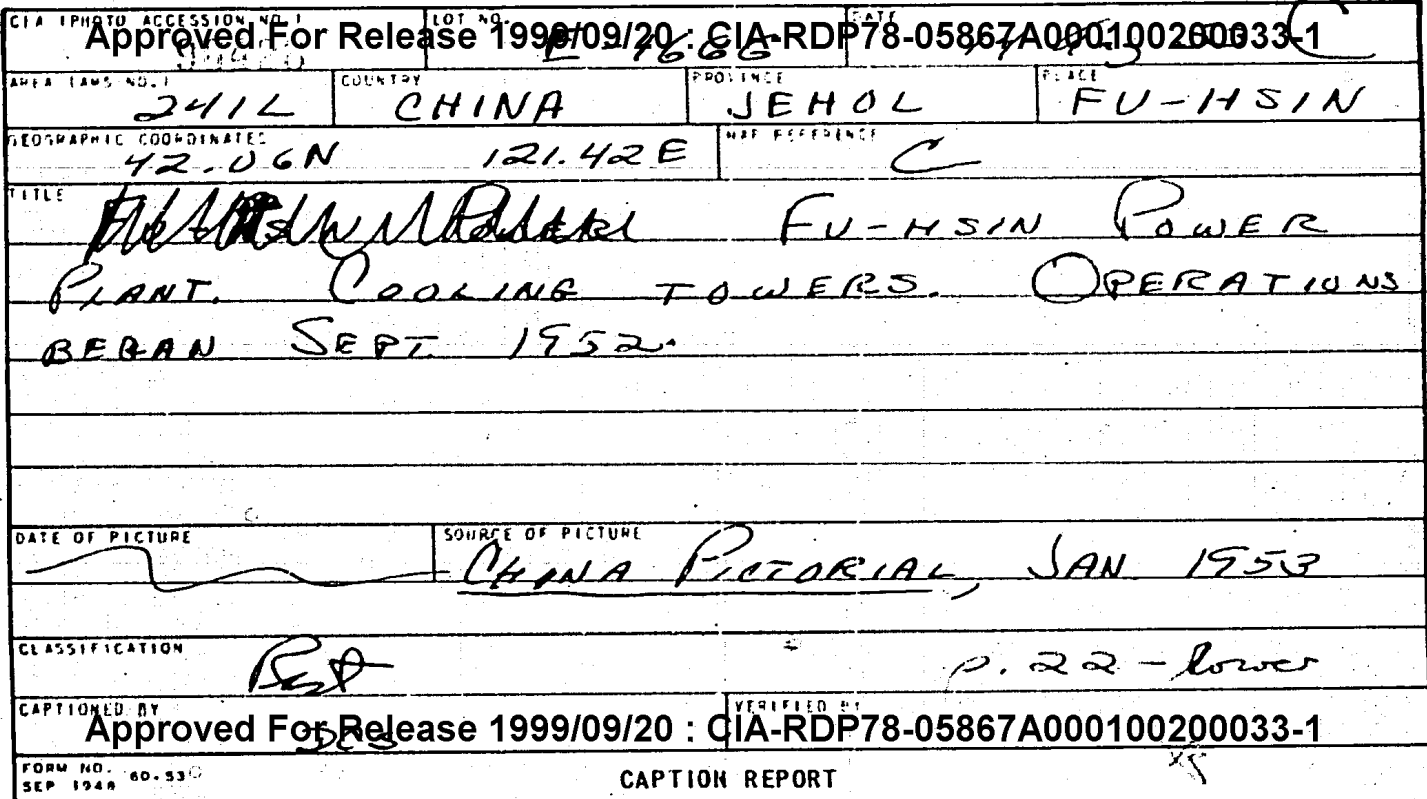 CIA (PHOTO ACCESSION NO.) LOT NO. DATE
Approved For Release 1999/09/20 : CIA-RDP78-05867A000100200033-1 C
AREA (AMS NO.) COUNTRY PROVINCE PLACE
241L CHINA JEHOL FU-HSIN
GEOGRAPHIC COORDINATES MAP REFERENCE
42.06N 121.42E C
TITLE
FU-HSIN POWER
PLANT. COOLING TOWERS. OPERATIONS
BEGAN SEPT. 1952.
DATE OF PICTURE SOURCE OF PICTURE
CHINA PICTORIAL, JAN 1953
CLASSIFICATION
p. 22 - lower
CAPTIONED BY VERIFIED BY
Approved For Release 1999/09/20 : CIA-RDP78-05867A000100200033-1
FORM NO. 60-53
SEP 1948
CAPTION REPORT